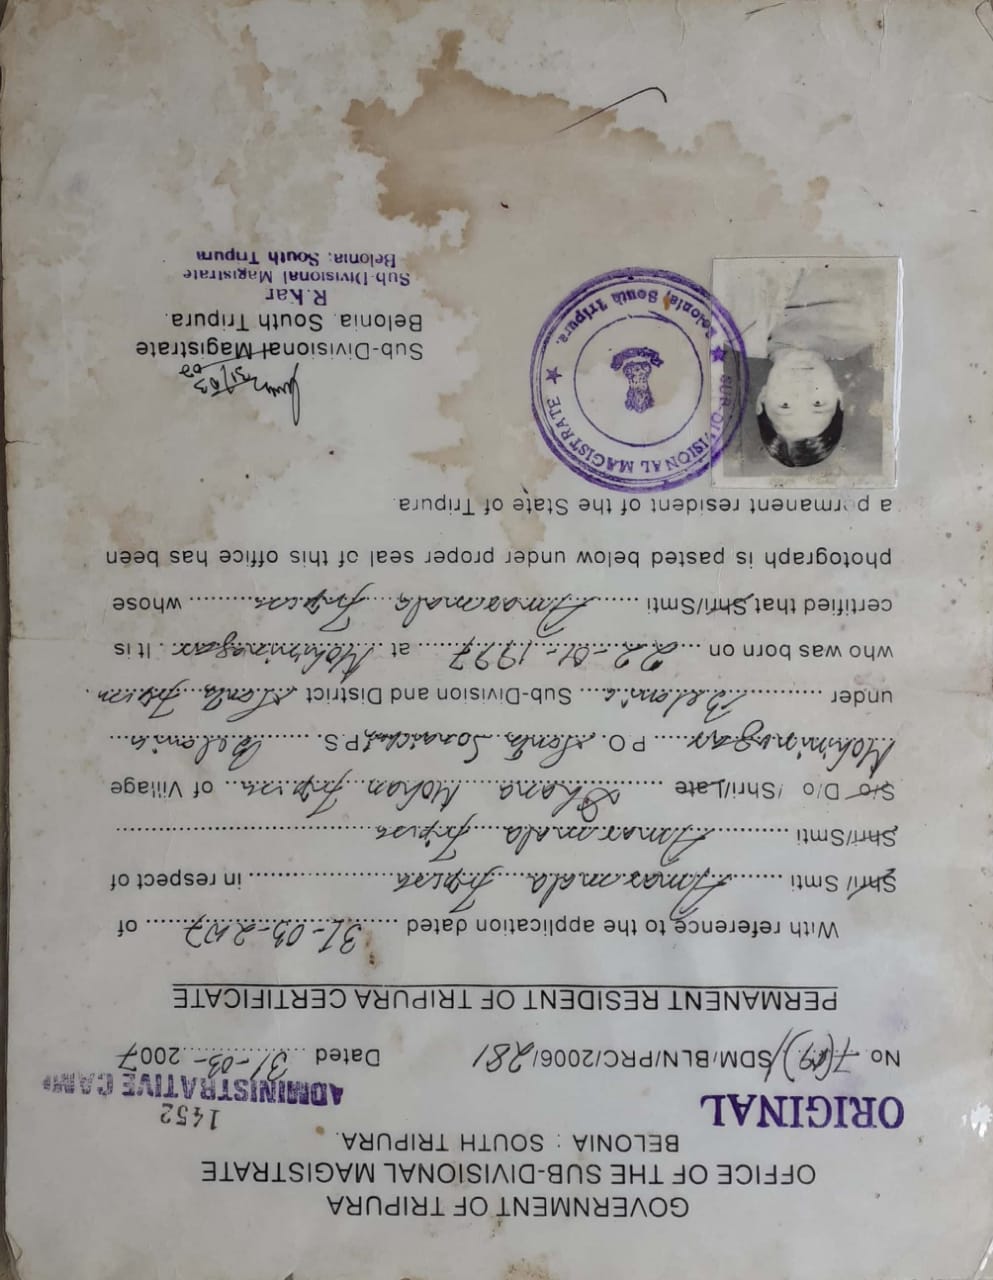 GOVERNMENT OF TRIPURA
OFFICE OF THE SUB-DIVISIONAL MAGISTRATE
BELONIA : SOUTH TRIPURA.
ORIGINAL
1452
ADMINISTRATIVE CAMP
No. 7(19)/SDM/BLN/PRC/2006/281 Dated 31-03-2007
PERMANENT RESIDENT OF TRIPURA CERTIFICATE
With reference to the application dated ......31-03-2007...... of
Shri/ Smti ......Amarmala Tripura...... in respect of
Shri/Smti ......Amarmala Tripura......
S/o D/o /Shri/Late ......Dhana Mohan Tripura...... of Village
Mohininagar...... P.O. Santi P.S. ......Belonia......
under ......Belonia...... Sub-Division and District South Tripura.
who was born on ......22-01-1997...... at ..Mohininagar.. It is
certified that Shri/Smti ......Amarmala Tripura...... whose
photograph is pasted below under proper seal of this office has been
a permanent resident of the State of Tripura.
SUB-DIVISIONAL MAGISTRATE
Belonia, South Tripura.
31/03
Sub-Divisional Magistrate
Belonia. South Tripura.
R.Kar
Sub-Divisional Magistrate
Belonia; South Tripura